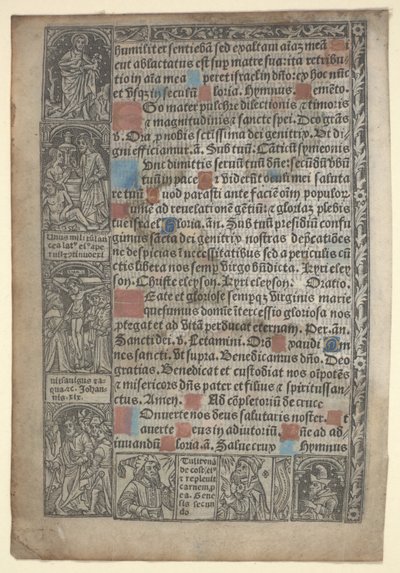 humiliter sentiebā sed exaltam aiaz meā Si
cut ablactatus est sup matre sua: ita retribu
tio in aia mea Speret israel in dño: ex hoc nūc
et vsqz in seculū Gloria. Hymnus Memēto.
Ego mater pulchre dilectionis et timoris
et magnitudinis et sancte spei. Deo grās
v. Ora p nobis sctissima dei genitrix. Vt di
gni efficiamur. ā. Sub tuū. Cāticū symeonis
Nunc dimittis seruū tuū dñe: secūdū vbū
tuū in pace Quia viderūt oculi mei saluta
re tuū Quod parasti ante faciē oim populor
Lumē ad reuelationē gētiū: et gloriaz plebis
tue israel Gloria. ān. Sub tuū presidiū confu
gimus sācta dei genitrix nostras depcatiōes
ne despicias i necessitatibus sed a periculis cū
ctis libera nos semp virgo bndicta. Kyri eley
son. Christe eleyson. Kyri eleyson. Oratio.
Beate et gloriose sempqz virginis marie
quesumus domie itercessio gloriosa nos
ptegat et ad vitā perducat eternam. Per. ān.
Sancti dei. v. Letamini. Orō Exaudi Om
nes sancti. vt supra. Benedicamus dño. Deo
gratias. Benedicat et custodiat nos oipotēs
et misericors dñs pater et filius et spiritussan
ctus. Amen. Ad cōpletoriū de cruce
Conuerte nos deus salutaris noster. Et
auerte Deus in adiutoriū. Dñe ad ad
iuuandū Gloria. ā. Salue crux Hymnus
Vnus militū lan
cea lat' ei' ape
ruit
sanguis et a
qua. ac. Johan
nis. xix.
Tulit vnā
de cost' ei'
et repleuit
carnem p
ea. Gene
sis secun
do